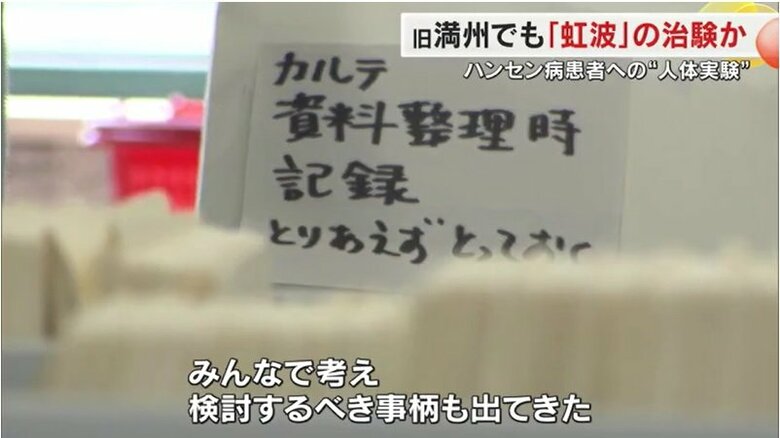 旧満州でも「虹波」の治験か
ハンセン病患者への“人体実験”
カルテ
資料整理時
記録
とりあえずとっておく
みんなで考え
検討するべき事柄も出てきた